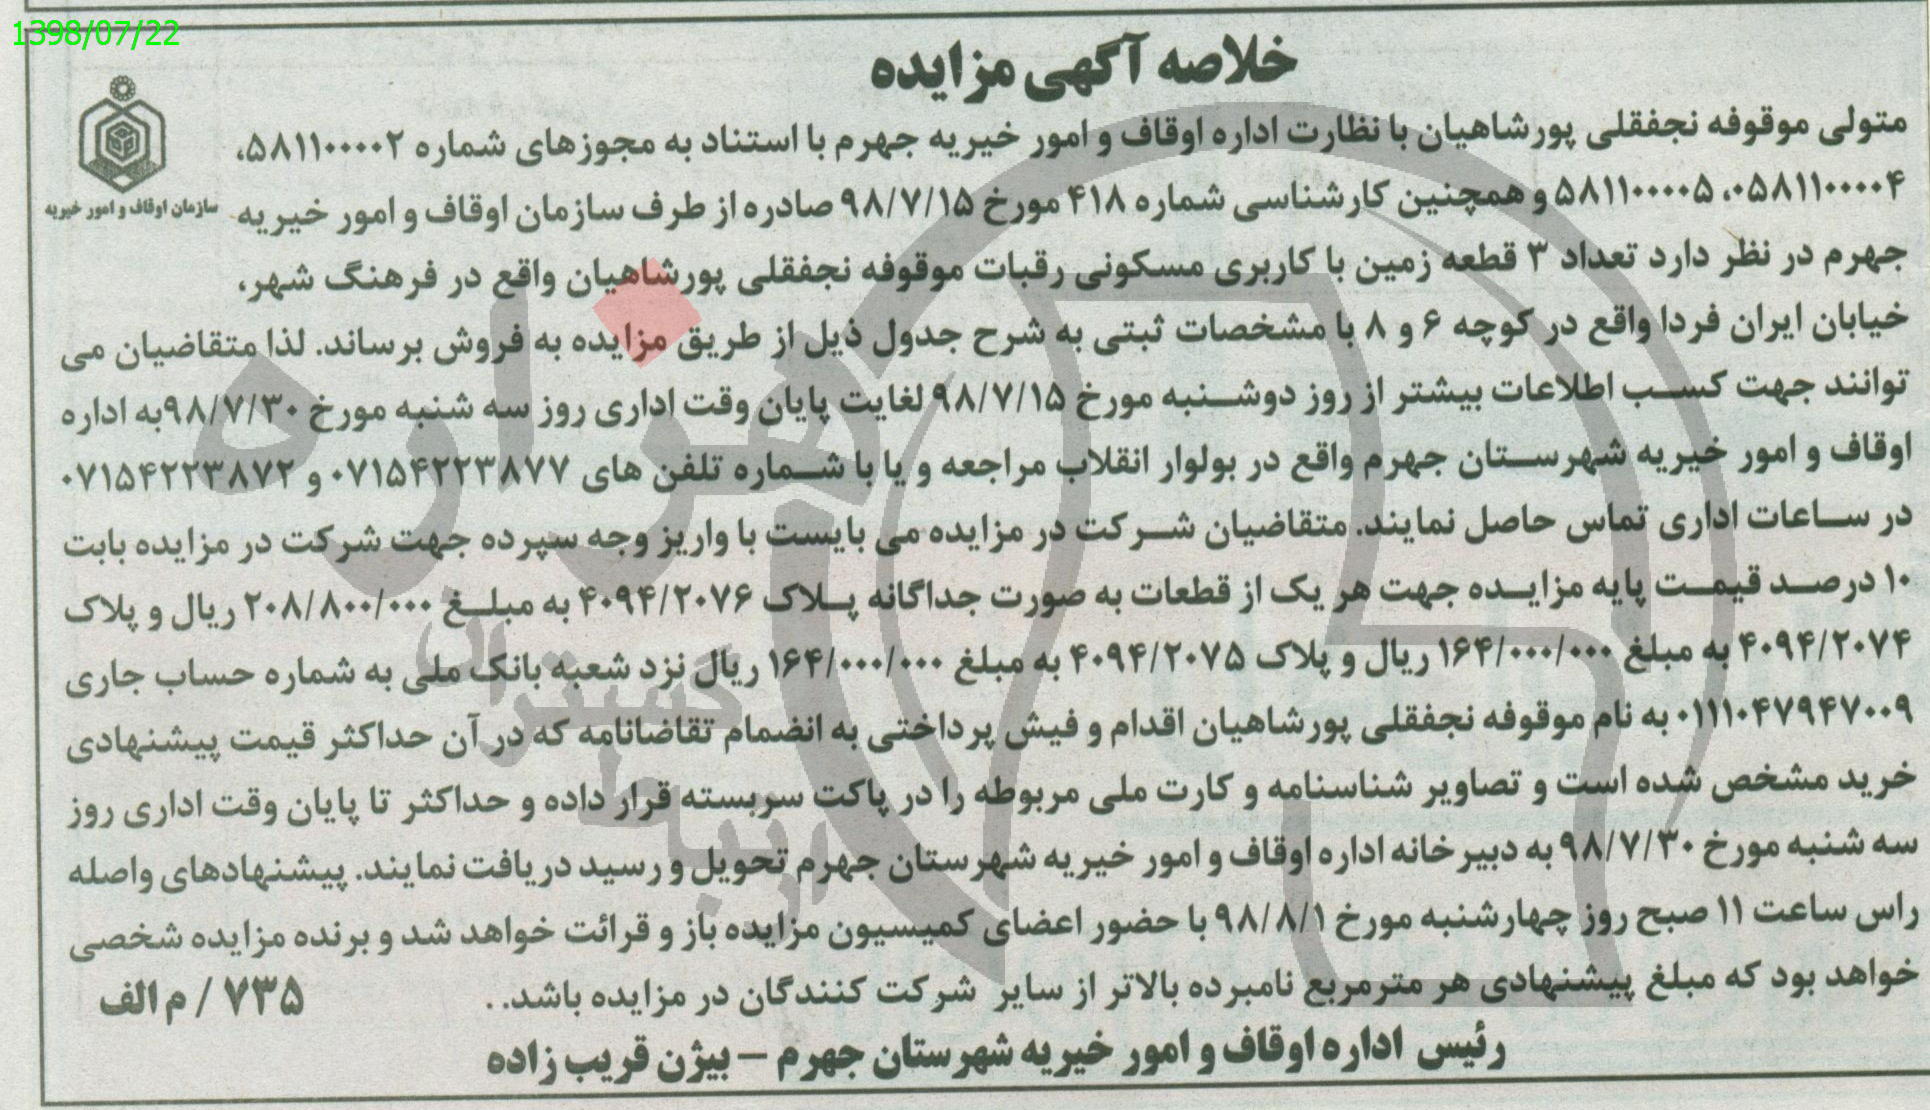 1398/07/22
خلاصه آگهی مزایده
سازمان اوقاف و امور خیریه
متولی موقوفه نجفقلی پورشاهیان با نظارت اداره اوقاف و امور خیریه جهرم با استناد به مجوزهای شماره ۵۸۱۱۰۰۰۰۲،
۰۵۸۱۱۰۰۰۰۴، ۵۸۱۱۰۰۰۰۵ و همچنین کارشناسی شماره ۴۱۸ مورخ ۹۸/۷/۱۵ صادره از طرف سازمان اوقاف و امور خیریه
جهرم در نظر دارد تعداد ۳ قطعه زمین با کاربری مسکونی رقبات موقوفه نجفقلی پورشاهیان واقع در فرهنگ شهر،
خیابان ایران فردا واقع در کوچه ۶ و ۸ با مشخصات ثبتی به شرح جدول ذیل از طریق مزایده به فروش برساند. لذا متقاضیان می
توانند جهت کسب اطلاعات بیشتر از روز دوشنبه مورخ ۹۸/۷/۱۵ لغایت پایان وقت اداری روز سه شنبه مورخ ۹۸/۷/۳۰به اداره
اوقاف و امور خیریه شهرستان جهرم واقع در بولوار انقلاب مراجعه و یا با شماره تلفن های ۰۷۱۵۴۲۲۳۸۷۷ و ۰۷۱۵۴۲۲۳۸۷۲
در ساعات اداری تماس حاصل نمایند. متقاضیان شرکت در مزایده می بایست با واریز وجه سپرده جهت شرکت در مزایده بابت
۱۰ درصد قیمت پایه مزایده جهت هر یک از قطعات به صورت جداگانه پلاک ۴۰۹۴/۲۰۷۶ به مبلغ ۲۰۸/۸۰۰/۰۰۰ ریال و پلاک
۴۰۹۴/۲۰۷۴ به مبلغ ۱۶۴/۰۰۰/۰۰۰ ریال و پلاک ۴۰۹۴/۲۰۷۵ به مبلغ ۱۶۴/۰۰۰/۰۰۰ ریال نزد شعبه بانک ملی به شماره حساب جاری
۰۱۱۱۰۴۷۹۴۷۰۰۹ به نام موقوفه نجفقلی پورشاهیان اقدام و فیش پرداختی به انضمام تقاضانامه که در آن حداکثر قیمت پیشنهادی
خرید مشخص شده است و تصاویر شناسنامه و کارت ملی مربوطه را در پاکت سربسته قرار داده و حداکثر تا پایان وقت اداری روز
سه شنبه مورخ ۹۸/۷/۳۰ به دبیرخانه اداره اوقاف و امور خیریه شهرستان جهرم تحویل و رسید دریافت نمایند. پیشنهادهای واصله
راس ساعت ۱۱ صبح روز چهارشنبه مورخ ۹۸/۸/۱ با حضور اعضای کمیسیون مزایده باز و قرائت خواهد شد و برنده مزایده شخصی
خواهد بود که مبلغ پیشنهادی هر مترمربع نامبرده بالاتر از سایر شرکت کنندگان در مزایده باشد. .
۷۳۵ / م الف
رئیس اداره اوقاف و امور خیریه شهرستان جهرم – بیژن قریب زاده
هزاره
گستران
ارتباط